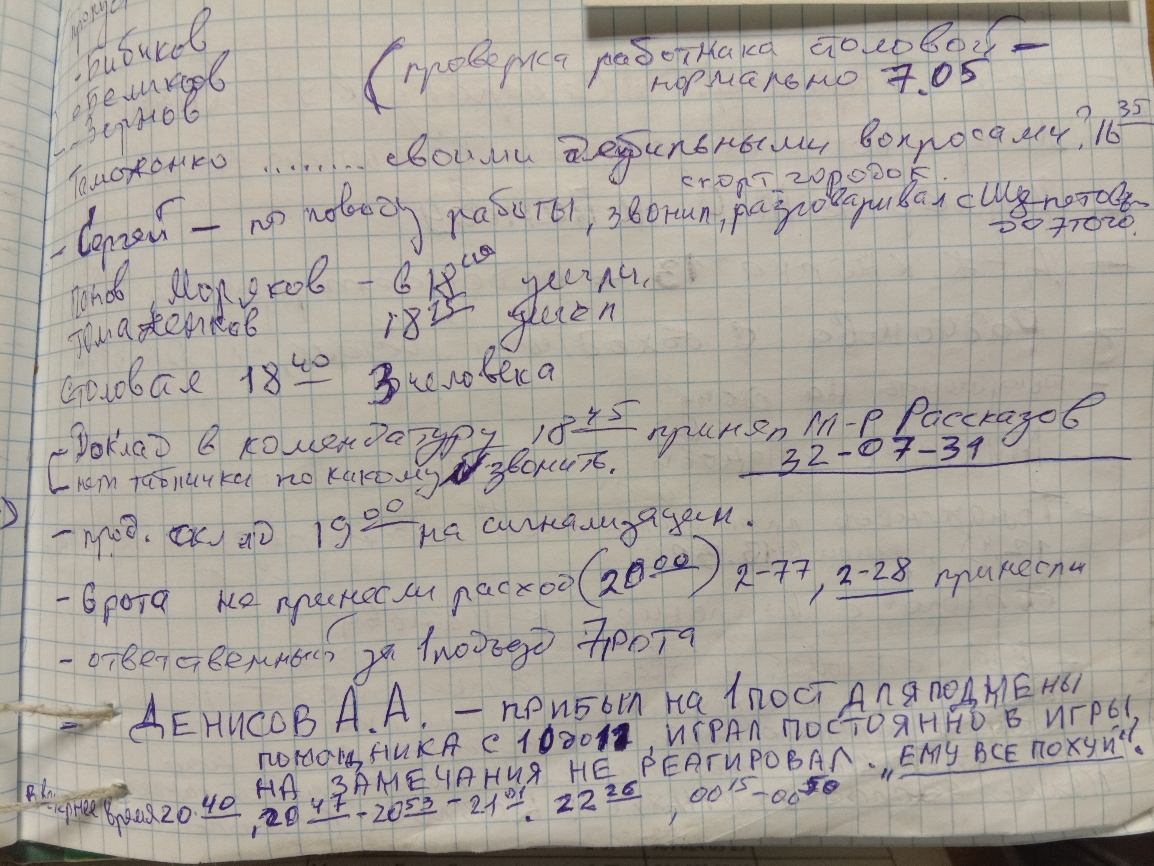 пропус
- Бибиков
- Беликов
- Зернов
(проверка работника столовой –
нормально 7.05
Таможенко ......... своими дебильными вопросами? 16 35
спорт городок.
- Сергей – по поводу работы, звонил, разговаривал с
до этого.
Попов, Моряков – в 18 00 ушли,
Томаженков 18 25 ушел
Столовая 18 40 3 человека
- Доклад в комендатуру 18 45 принял м-р Рассказов
[нет таблички по какому звонить. 32-07-31
- прод. склад 19 00 на сигнализации.
- 6 рота не принесли расход (20 00) 2-77, 2-28 принесли
- ответственный за 1 подъезд 7 рота
- ДЕНИСОВ А.А. – ПРИБЫЛ НА 1 ПОСТ ДЛЯ ПОДМЕНЫ
ПОМОЩНИКА С 10 до 11, ИГРАЛ ПОСТОЯННО В ИГРЫ,
НА ЗАМЕЧАНИЯ НЕ РЕАГИРОВАЛ. „ЕМУ ВСЕ ПОХУЙ".
время 20 40, 20 47 - 20 53 - 21 01. 22 26, 00 15 - 00 50